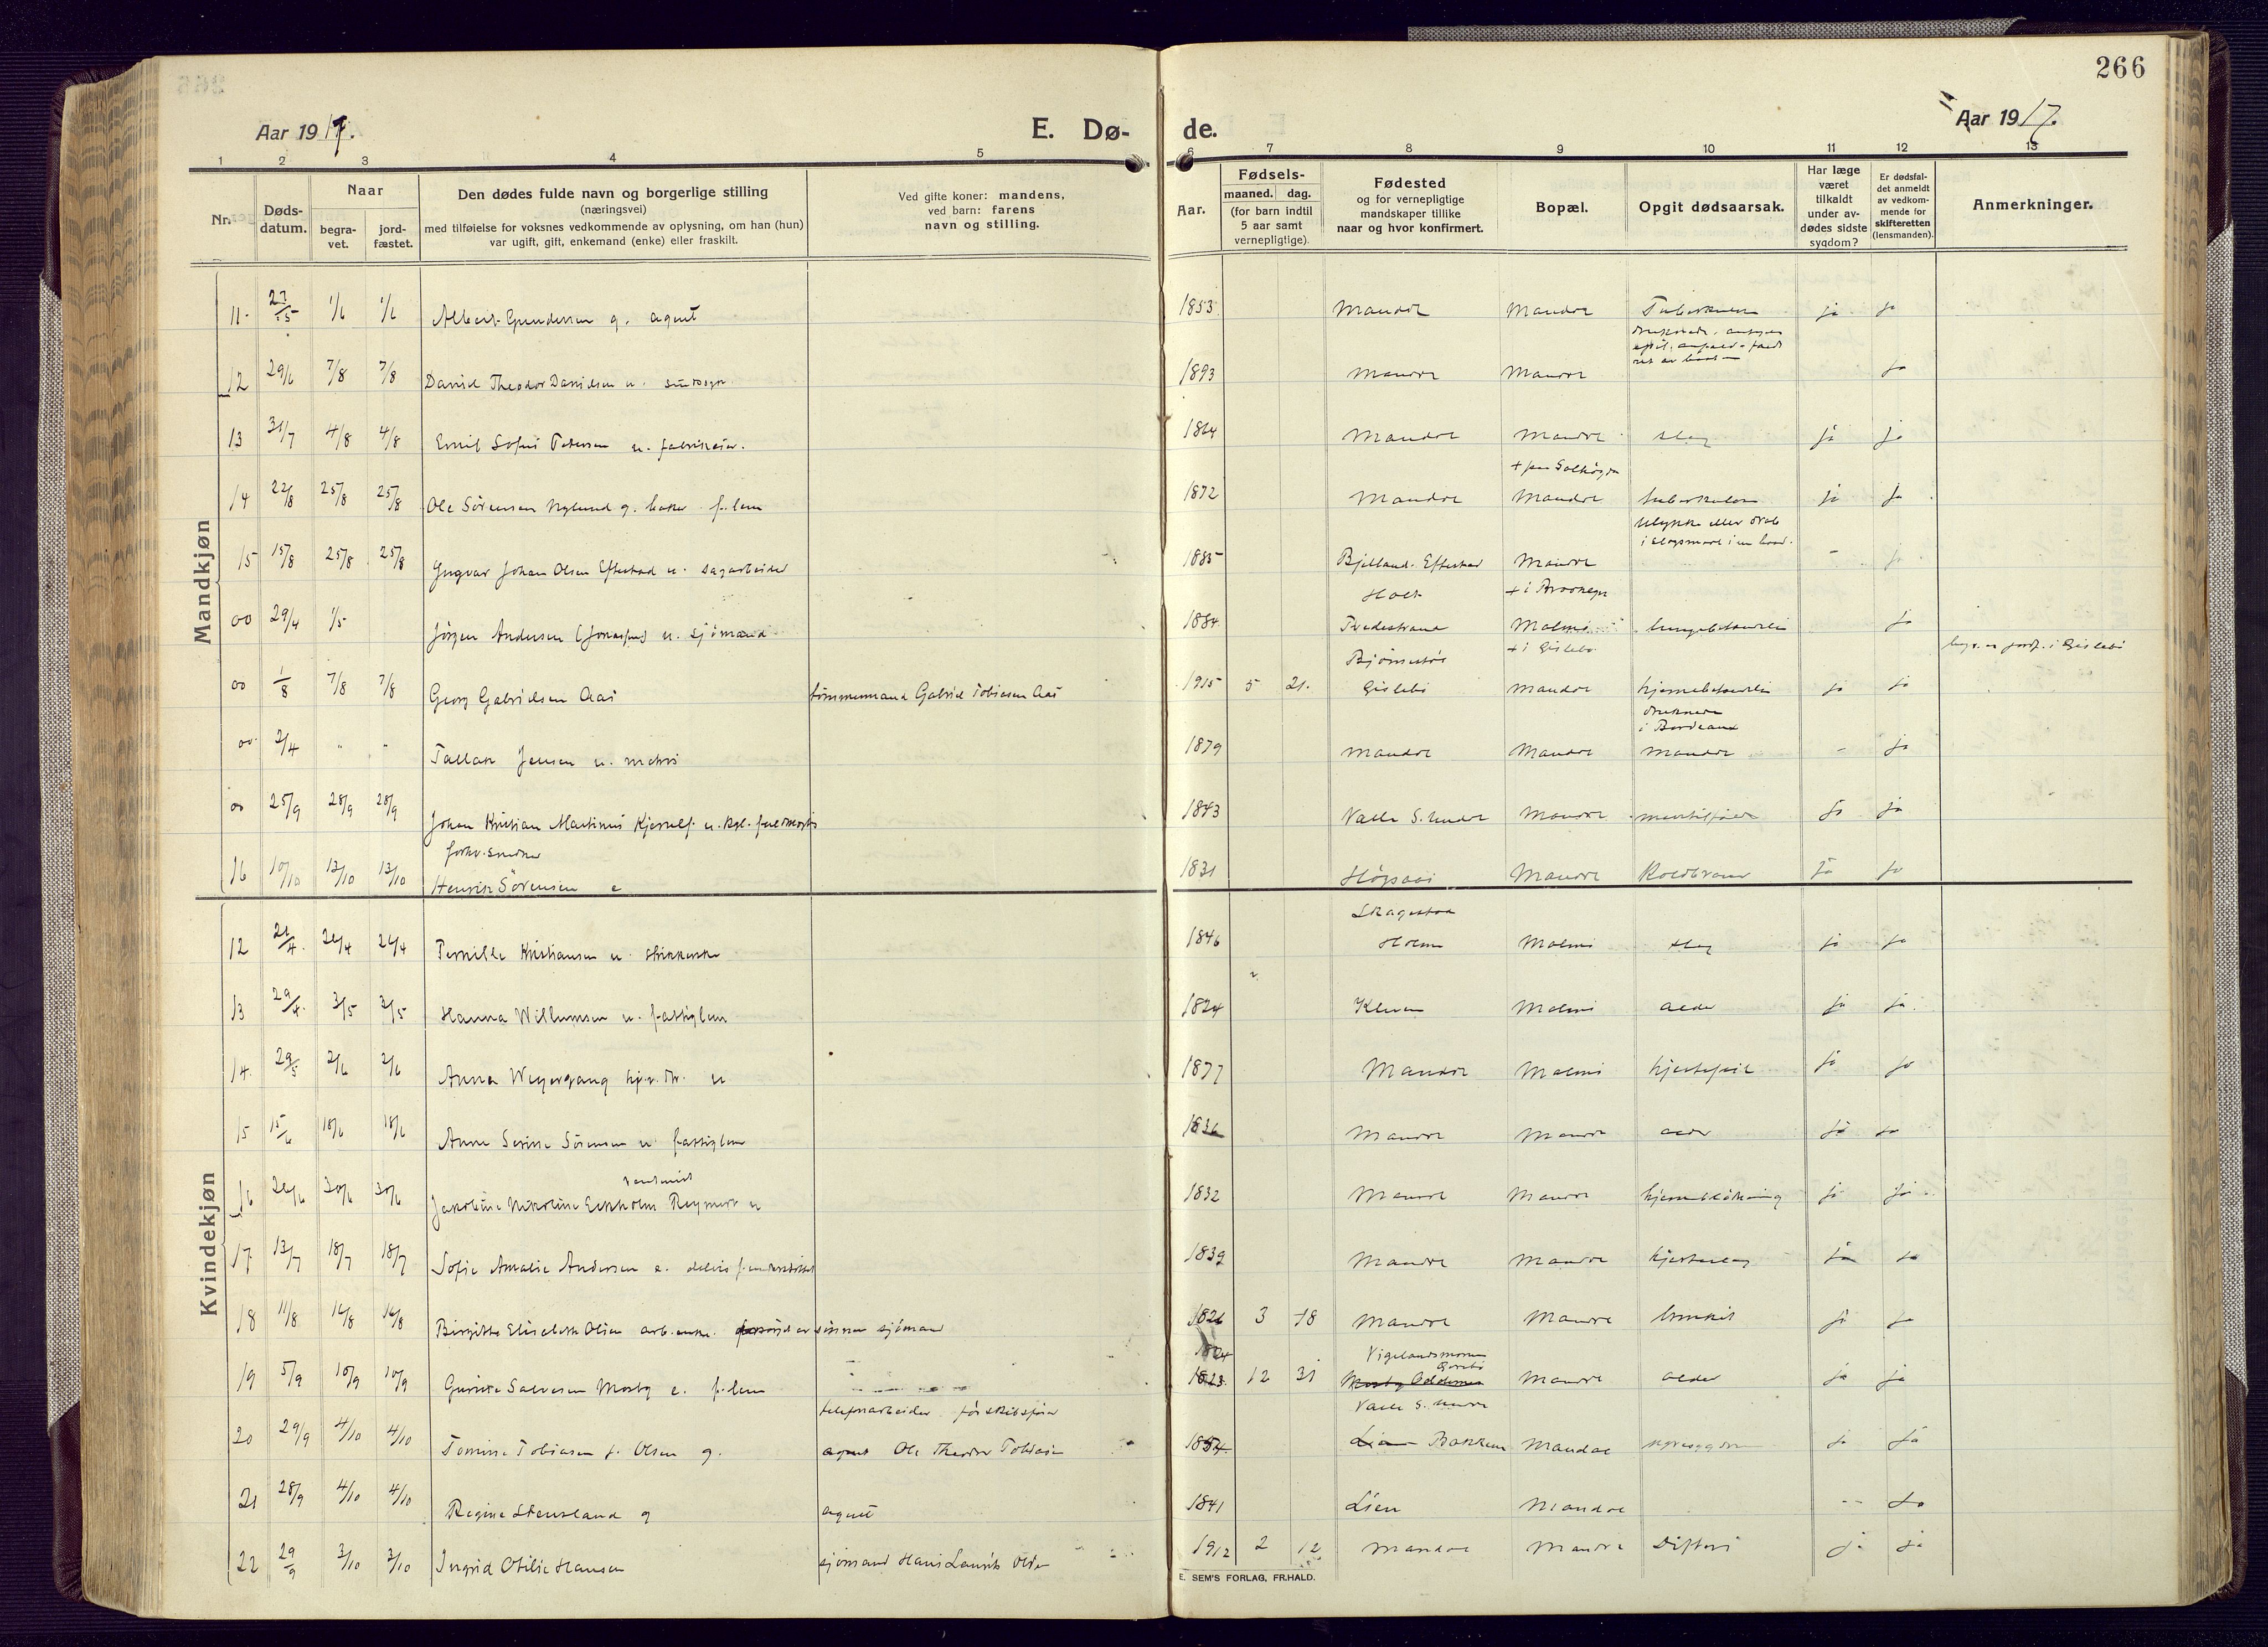 266
Aar 1917.
E. Dø-
de.
Aar 1917.
1 2 3 4 5 6 7 8 9 10 11 12 13
Nr.
Døds-
datum.
Naar
begra-
vet.
jord-
fæstet.
Den dødes fulde navn og borgerlige stilling
(næringsvei)
med tilføielse for voksnes vedkommende av oplysning, om han (hun)
var ugift, gift, enkemand (enke) eller fraskilt.
Ved gifte koner: mandens,
ved barn: farens
navn og stilling.
Aar.
Fødsels-
maaned. dag.
(for barn indtil
5 aar samt
vernepligtige).
Fødested
og for vernepligtige
mandskaper tillike
naar og hvor konfirmert.
Bopæl.
Opgit dødsaarsak.
Har læge
været
tilkaldt
under av-
dødes sidste
sygdom?
Er dødsfal-
det anmeldt
av vedkom-
mende for
skifteretten
(lensmanden).
Anmerkninger.
Mandkjøn
11. 27/5 1/6 1/6 Albert Gundersen g. agent 1853 Mandal Mandal Tuberkulose ja ja
12 29/6 7/8 7/8 David Theodor Davidsen u. 1893 Mandal Mandal ja
13 31/7 4/8 4/8 Emil Sofus Petersen u. fabrikeier. 1864 Mandal Mandal slag ja ja
14 22/8 25/8 25/8 Ole Sørensen Nylund g. baker f.lem 1872 Mandal Mandal tuberkulose ja ja
ulykke eller drab
15 15/8 25/8 25/8 Yngvar Johan Olsen Eftestad u. sagarbeider 1885 Bjelland. Eftestad Mandal - ja
Holt
00 29/4 1/5 Jørgen Andersen (Jonassen) u. sjømand 1884 Tvedestrand Malmø lungebetændelse ja
+ i Gislebo
00 1/8 7/8 7/8 Georg Gabrielsen Aas tømmermand Gabriel Tobiasen Aas 1915 5 21. Gislebo Mandal hjernebetændelse ja ja
druknede
i Bordeaux
00 2/4 " " Tallak Jensen u. matros 1879 Mandal Mandal Mandal - ja
00 25/9 28/9 28/9 Johan Kristian Martinus Kjerulf u. kgl. fuldmægtig 1843 Valle S. Undal Mandal ja ja
forhv. snedker
16 10/10 13/10 13/10 Henrik Sørensen e 1831 Høgsaas Mandal Koldbrand ja ja
Kvindekjøn
Skagestad
12 21/4 26/4 26/4 Pernille Kristiansen u. strikkerske 1846 Holum Malmø slag ja ja
13 29/4 3/5 3/5 Hanna Willumsen u. fattiglem 1824 Kleven Malmø alder ja ja
14. 29/5 2/6 2/6 Anna Weyergang u 1877 Mandal Malmø hjertefeil ja ja
15 15/6 18/6 18/6 Anne Serine Sørensen u. fattiglem 1836 Mandal Mandal alder ja ja
16 26/6 30/6 30/6 Jakobine Nikoline Eckholm Reymert u 1832 Mandal Mandal hjerneblødning ja ja
17 13/7 18/7 18/7 Sofie Amalie Andersen e. delvis f.understøttet 1839 Mandal Mandal hjerteslag ja ja
18 11/8 16/8 16/8 Birgitte Elisabeth Olsen arb. enke. forsørjet av sønnen sjømand 1826 3 18 Mandal Mandal bronkit ja ja
1824
Vigelandsmoen
19 5/9 10/9 10/9 Gurine Salvesen Mosby e. f.lem 1823. 12 31 Mandal alder ja ja
telefonarbeider før skibsfører
Valle S. Undal
20 29/9 4/10 4/10 Tomine Tobiasen f. Olsen g. agent Ole Theodor Tobiasen 1854 Lian Bakken Mandal ja ja
21 28/9 4/10 4/10 Regine Stensland g agent 1841 Lien Mandal -- ja
22 29/9 3/10 3/10 Ingrid Otilie Hansen sjømand Hans Laurits Olsen 1912 2 12 Mandal Mandal Difteri ja ja
E. SEM'S FORLAG, FR.HALD.